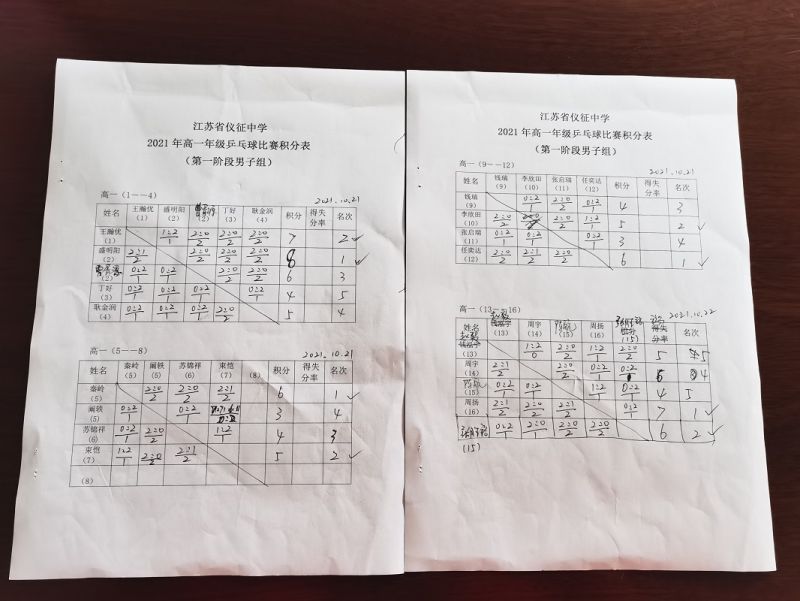 江苏省仪征中学
2021年高一年级乒乓球比赛积分表
（第一阶段男子组）
高一（1--4）
2021.10.21
姓名 王瀚优（1） 盛明阳（2） （2） 丁好（3） 耿金润（4） 积分 得失分率 名次
王瀚优（1） 1:2/1 2:0/2 2:0/2 2:0/2 7 2✓
盛明阳（2） 2:1/2 2:0/2 2:0/2 2:0/2 8 1✓
（2） 0:2/1 0:2/1 2:0/2 2:0/2 6 3
丁好（3） 0:2/1 0:2/1 0:2/1 0:2/1 4 5
耿金润（4） 0:2/1 0:2/1 0:2/1 2:0/2 5 4
高一（5--8）
2021.10.21
姓名 秦岭（5） 阚轶（5） 苏锦祥（6） 束恺（7） （8） 积分 得失分率 名次
秦岭（5） 2:0/2 2:0/2 2:1/2 6 1✓
阚轶（5） 0:2/1 0:2/1 3 4
苏锦祥（6） 0:2/1 2:0/2 1:2/1 4 3
束恺（7） 1:2/1 2:0/2 2:1/2 5 2✓
（8）
江苏省仪征中学
2021年高一年级乒乓球比赛积分表
（第一阶段男子组）
高一（9--12）
2021.10.21
姓名 钱瑞（9） 李欣田（10） 张启瑞（11） 任奕达（12） 积分 得失分率 名次
钱瑞（9） 0:2/1 2:0/2 0:2/1 4 3
李欣田（10） 2:0/2 2:0/2 1:2/1 5 2✓
张启瑞（11） 0:2/1 0:2/1 0:2/1 3 4
任奕达（12） 2:0/2 2:1/2 2:0/2 6 1✓
高一（13--16）
2021.10.22
姓名 （13） 周宇（14） （15） 周扬（16） （15） 积分 得失分率 名次
（13） 1:2/0 2:0/2 1:2/1 2:0/2 5 5
周宇（14） 2:1/2 2:0/2 0:2/1 4
（15） 0:2/1 0:2/1 1:2/1 0:2/1 4 5
周扬（16） 2:1/2 2:0/2 2:1/2 0:2/1 7 1✓
（15） 0:2/1 2:0/2 2:0/2 2:0/2 6 2✓